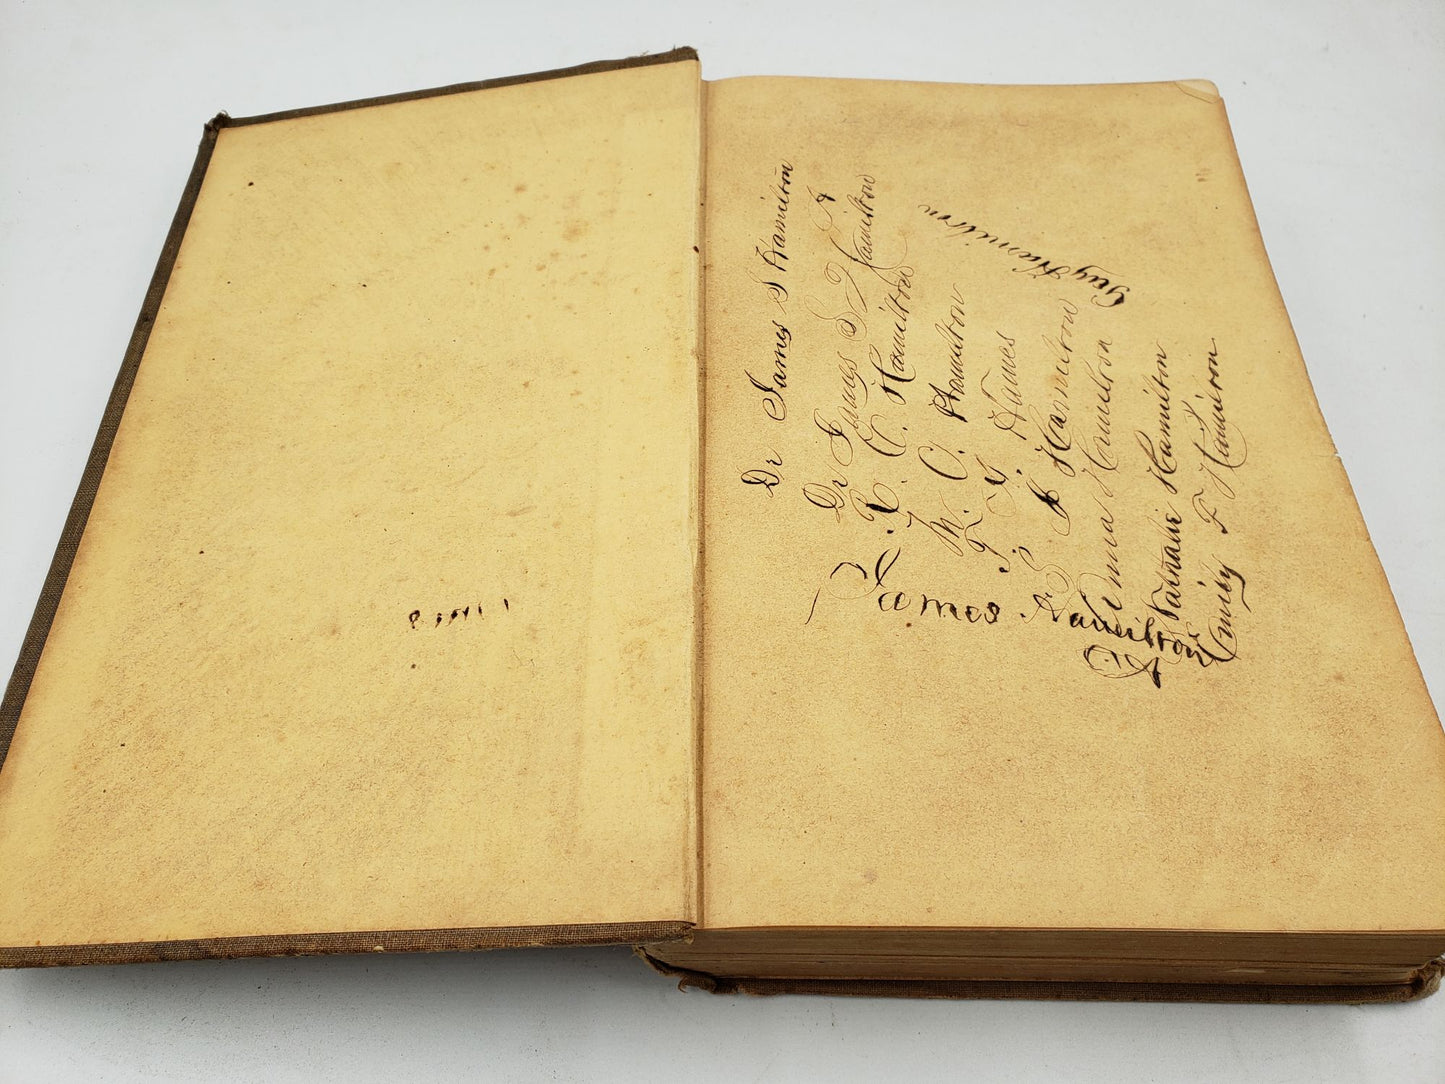 Dr James S Hamilton
Dr James S F Hamilton
R C. Hamilton
W. C. Hamilton
T. G. Hames
S J Hamilton
Anna Hamilton
Nathalie Hamilton
Emily F Hamilton
James Hamilton
Guy Hamilton